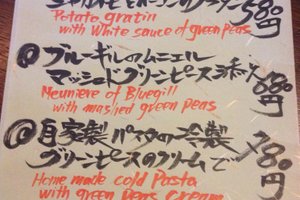 Potato gratin
580円
with White sauce of green peas
@ ブルーギルのムニエル
マッシュドグリーンピース添え
680円
Meuniere of Bluegill
with mashed green peas
@ 自家製パスタの冷製
グリーンピースのクリームで
780円
Home made cold Pasta
with green peas cream